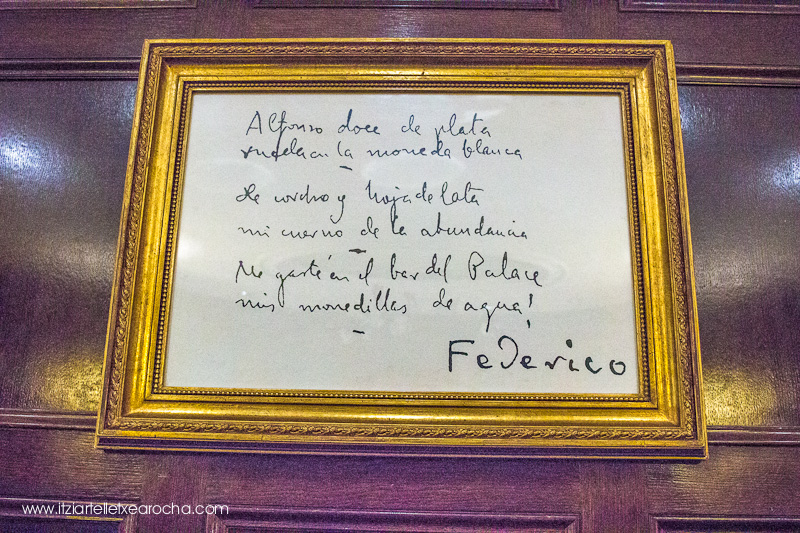 Alfonso doce de plata
rueda en la moneda blanca
De corcho y hojadelata
mi cuerno de la abundancia
Me gasté en el bar del Palace
mis monedillas de agua!
Federico
www.itziartelletxearocha.com